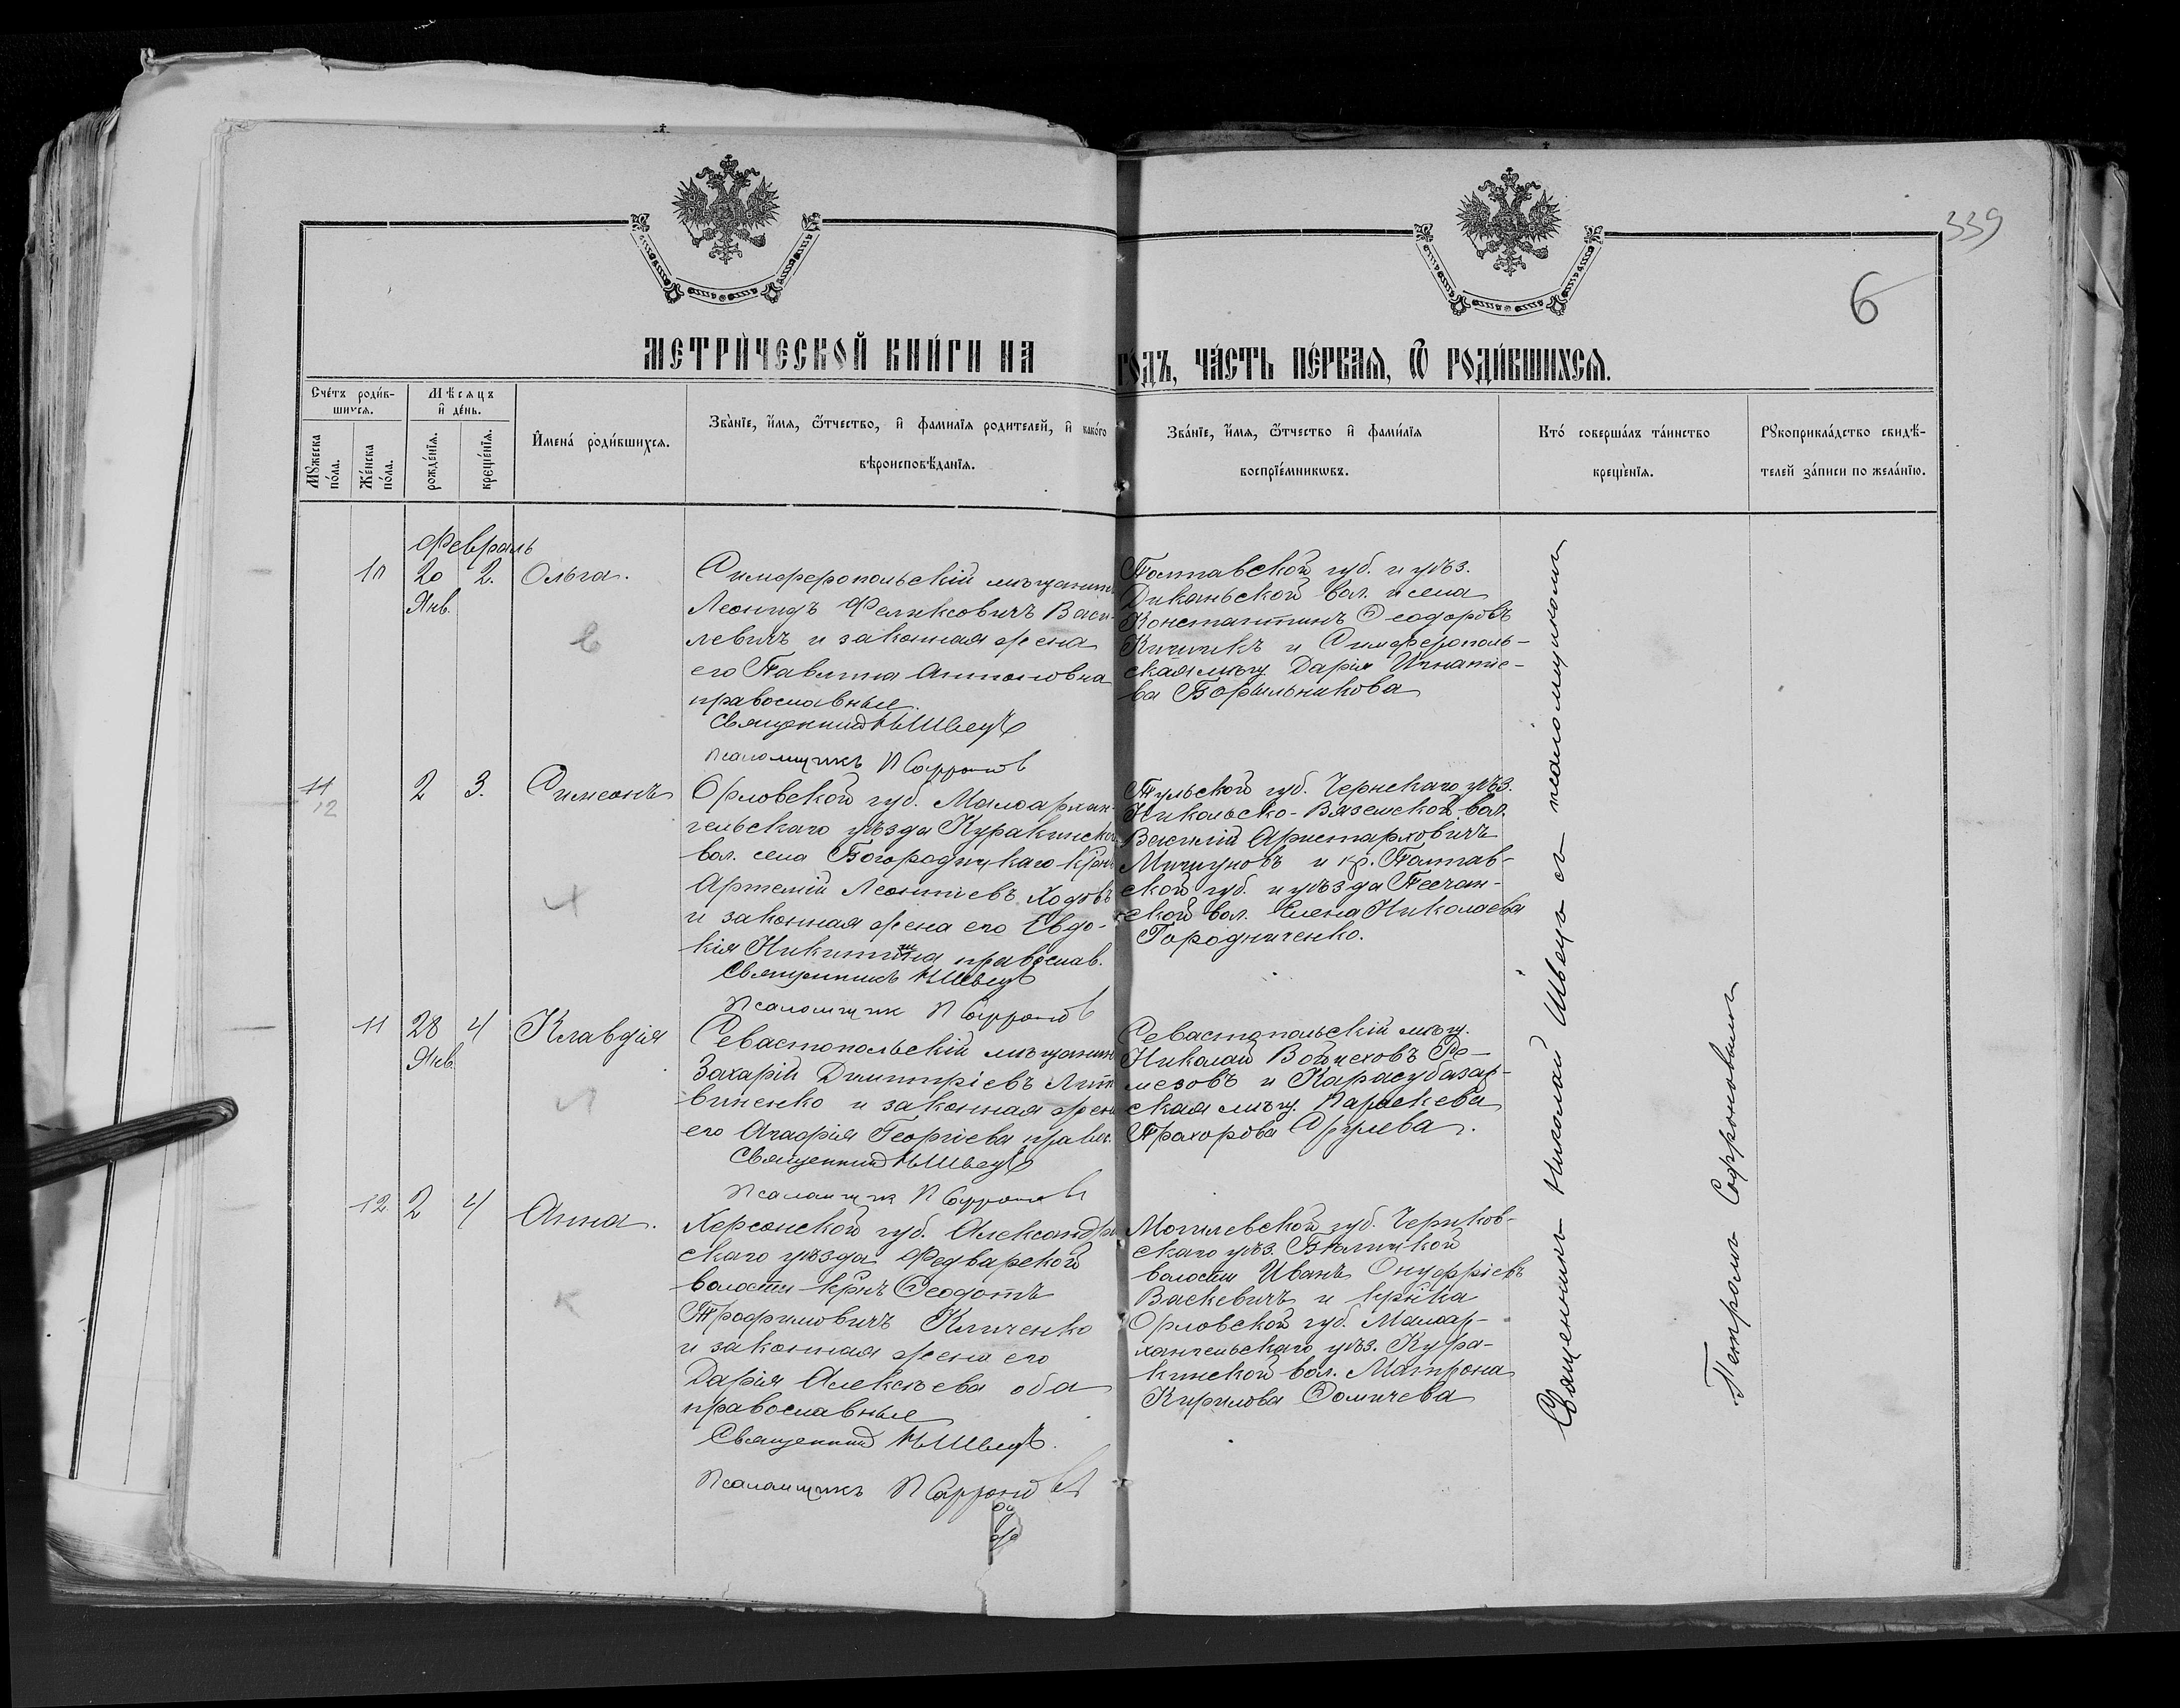 339
6
МЕТРИ́ЧЕСКОЙ КНИ́ГИ НА ГО́ДЪ, ЧА́СТЬ ПЕ́РВАѦ, Ѿ РОДИ́ВШИХСѦ.
Сче́тъ роди́в-
шихсѧ.
Мѣсѧцъ
и де́нь.
Мꙋжеска
по́ла.
Же́нска
по́ла.
рожде́нїѧ.
креще́нїѧ.
Имена́ роди́вшихсѧ.
Зва́нїе, и́мѧ, ѻ́тчество, и фами́лїѧ родителей, и како́го
вѣроисповѣ́данїѧ.
Зва́нїе, и́мѧ, ѻ́тчество и фами́лїѧ
воспрїе́мникѡвъ.
Кто́ соверша́лъ та́инство
креще́нїѧ.
Рꙋкоприкла́дство свидѣ́-
телей за́писи по жела́нїю.
Февраль
10 20 2. Ольга.
Янв.
Симферопольскій мѣщанинъ
Леонидъ Феликсовичъ Васи-
левичъ и законная жена
его Павлина Антоновна
православные.
Священникъ Н Швецъ
Псаломщикъ П Софронов
Полтавской губ. и уѣз.
Диканьской вол. и села
Константинъ Ѳеодоровъ
и Симферополь-
ская мѣщ. Дарія Игнатіе-
ва
11
12
2 3. Симеонъ
Орловской губ. Малоархан-
гельскаго уѣзда Куракинской
вол. села Богородицкаго крнъ
Артемій Леонтіевъ Ходовъ
и законная жена его Евдо-
кія Никитина православ.
Священникъ Н Швецъ
Псаломщик П Софронов
Тульской губ. Чернскаго уѣз.
Никольско-Вяземской вол.
Василій Аристарховичъ
Мичуновъ и кр. Полтав-
ской губ. и уѣзда Песчан-
ской вол. Елена Николаева
Городниченко.
11 28 4 Клавдія
Янв.
Севастопольскій мѣщанинъ
Захарій Димитріевъ Лит
виненко и законная жена
его Агафія Георгіева правос.
Священникъ Н Швецъ
Псаломщик П Софронов
Севастопольскій мѣщ.
Николай Войцеховъ Ре-
мезовъ и Карасубазар-
ская мѣщ. Параскева
Прохорова
12 2 4 Анна.
Херсонской губ. Александрій
скаго уѣзда Федварской
волости крнъ Ѳеодотъ
Трофимовичъ Кличенко
и законная жена его
Дарія Алексѣева оба
православные
Священникъ Н Швецъ.
Псаломщикъ П Софронов
Могилевской губ. Чериков-
скаго уѣз.
волости Иванъ Онуфріевъ
Васкевичъ и крнка
Орловской губ. Малоар-
хангельскаго уѣз. Кура-
кинской вол. Матрона
Кирилова Ѳомичева
Священникъ Николай Швецъ съ псаломщикомъ
Петромъ Софроновымъ